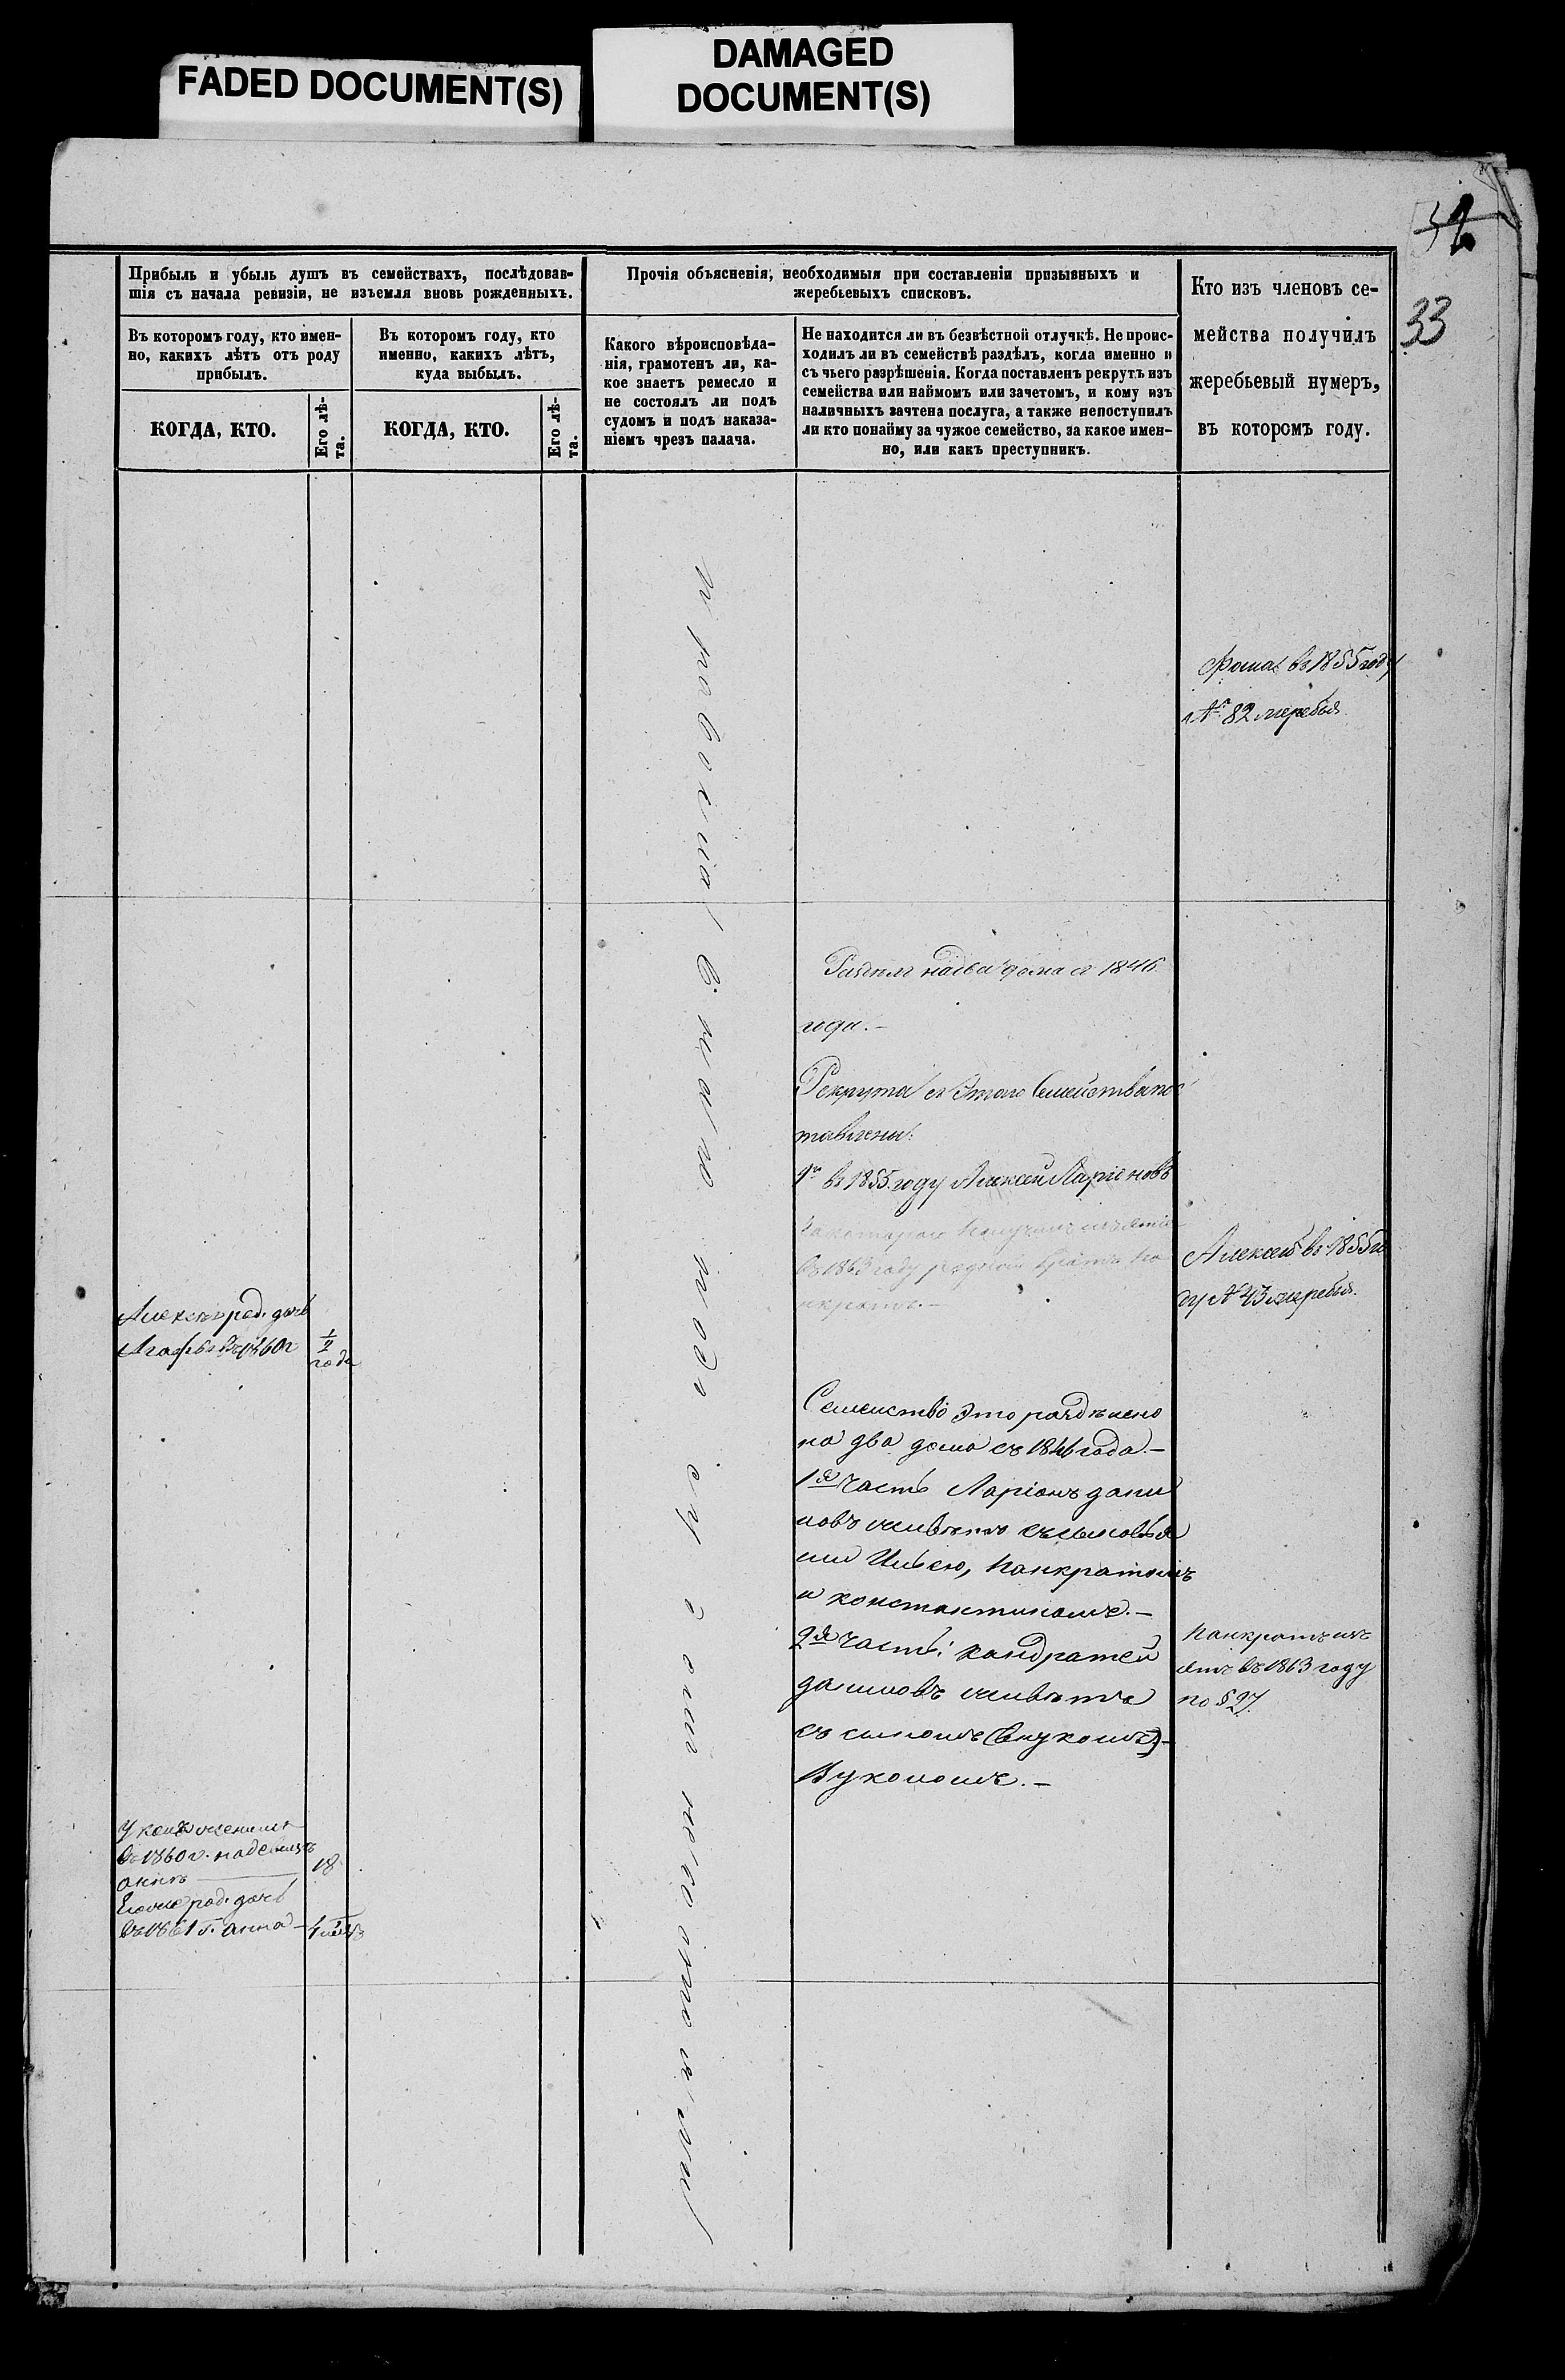 FADED DOCUMENT(S)
DAMAGED
DOCUMENT(S)
33
Прибыль и убыль душъ въ семействахъ, послѣдовав-
шія съ начала ревизіи, не изъемля вновь рожденныхъ.
Въ которомъ году, кто имен-
но, какихъ лѣтъ отъ роду
прибылъ.
Въ которомъ году, кто
именно, какихъ лѣтъ,
куда выбылъ.
КОГДА, КТО.
Его лѣ-
та.
КОГДА, КТО.
Его лѣ-
та.
Прочія объясненія, необходимыя при составленіи призывныхъ и
жеребьевыхъ списковъ.
Какого вѣроисповѣда-
нія, грамотенъ ли, ка-
кое знаетъ ремесло и
не состоялъ ли подъ
судомъ и подъ наказа-
ніемъ чрезъ палача.
Не находится ли въ безвѣстной отлучкѣ. Не проис-
ходилъ ли въ семействѣ раздѣлъ, когда именно и
съ чьего разрѣшенія. Когда поставленъ рекрутъ изъ
семейства или наймомъ или зачетомъ, и кому изъ
наличныхъ зачтена послуга, а также непоступилъ
ли кто понайму за чужое семейство, за какое имен-
но, или какъ преступникъ.
Кто изъ членовъ се-
мейства получилъ
жеребьевый нумеръ,
въ которомъ году.
Фома въ 1855 году
№ 82 жеребья
Раздѣл на два дома с 1846
года.-
Рекрута съ Этаго Семейства пос
тавлены:
въ 1855 году Алексей Ларіоновъ
въ 1863 году родной братъ Па
нкратъ.-
Алексей въ 1855 го
ду № 43 жеребья.
род. дочь
въ 1860 г
года
Семейство Это раздѣлено
на два дома съ 1846 года.-
1я часть Ларіонъ дани
ловъ съ сыновья
ми Ильею, Панкратомъ
и константиномъ.-
2я часть: кандратей
даниловъ
съ сыномъ (внукомъ)-
Вуколомъ.-
Панкратъ
въ 1863 году
по § 27
въ 1860 г.
18
род. дочь
въ 1861 г. анна-